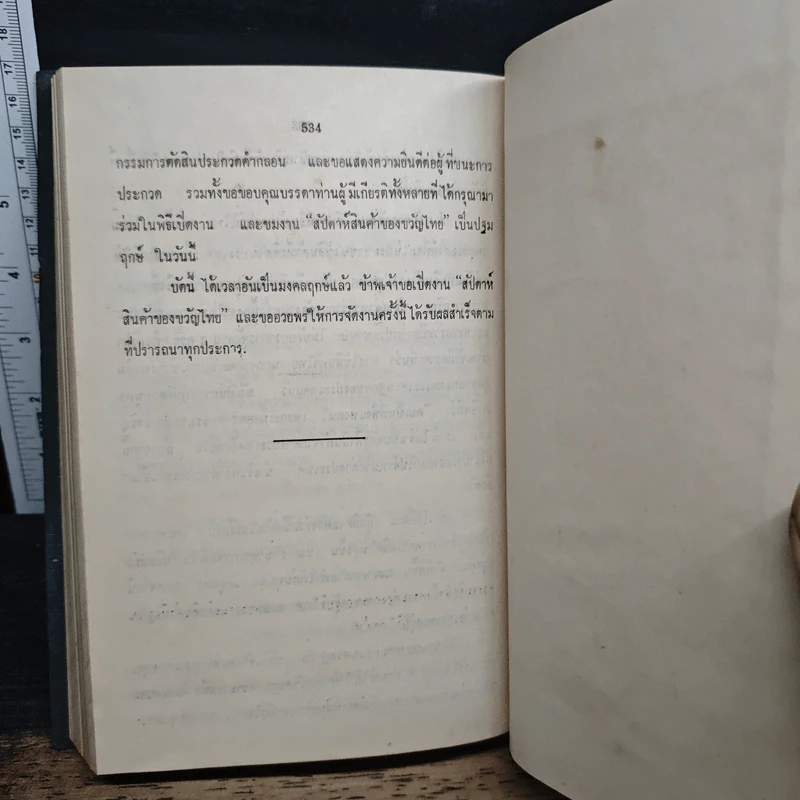 534
กรรมการตัดสินประกวดคำกลอน และขอแสดงความยินดีต่อผู้ที่ชนะการ
ประกวด รวมทั้งขอขอบคุณบรรดาท่านผู้มีเกียรติทั้งหลายที่ได้กรุณามา
ร่วมในพิธีเปิดงาน และชมงาน “สัปดาห์สินค้าของขวัญไทย” เป็นปฐม
ฤกษ์ ในวันนี้
บัดนี้ ได้เวลาอันเป็นมงคลฤกษ์แล้ว ข้าพเจ้าขอเปิดงาน “สัปดาห์
สินค้าของขวัญไทย” และขออวยพรให้การจัดงานครั้งนี้ได้รับผลสำเร็จตาม
ที่ปรารถนาทุกประการ.
5
18
17
16
15
14
13
4
3
2